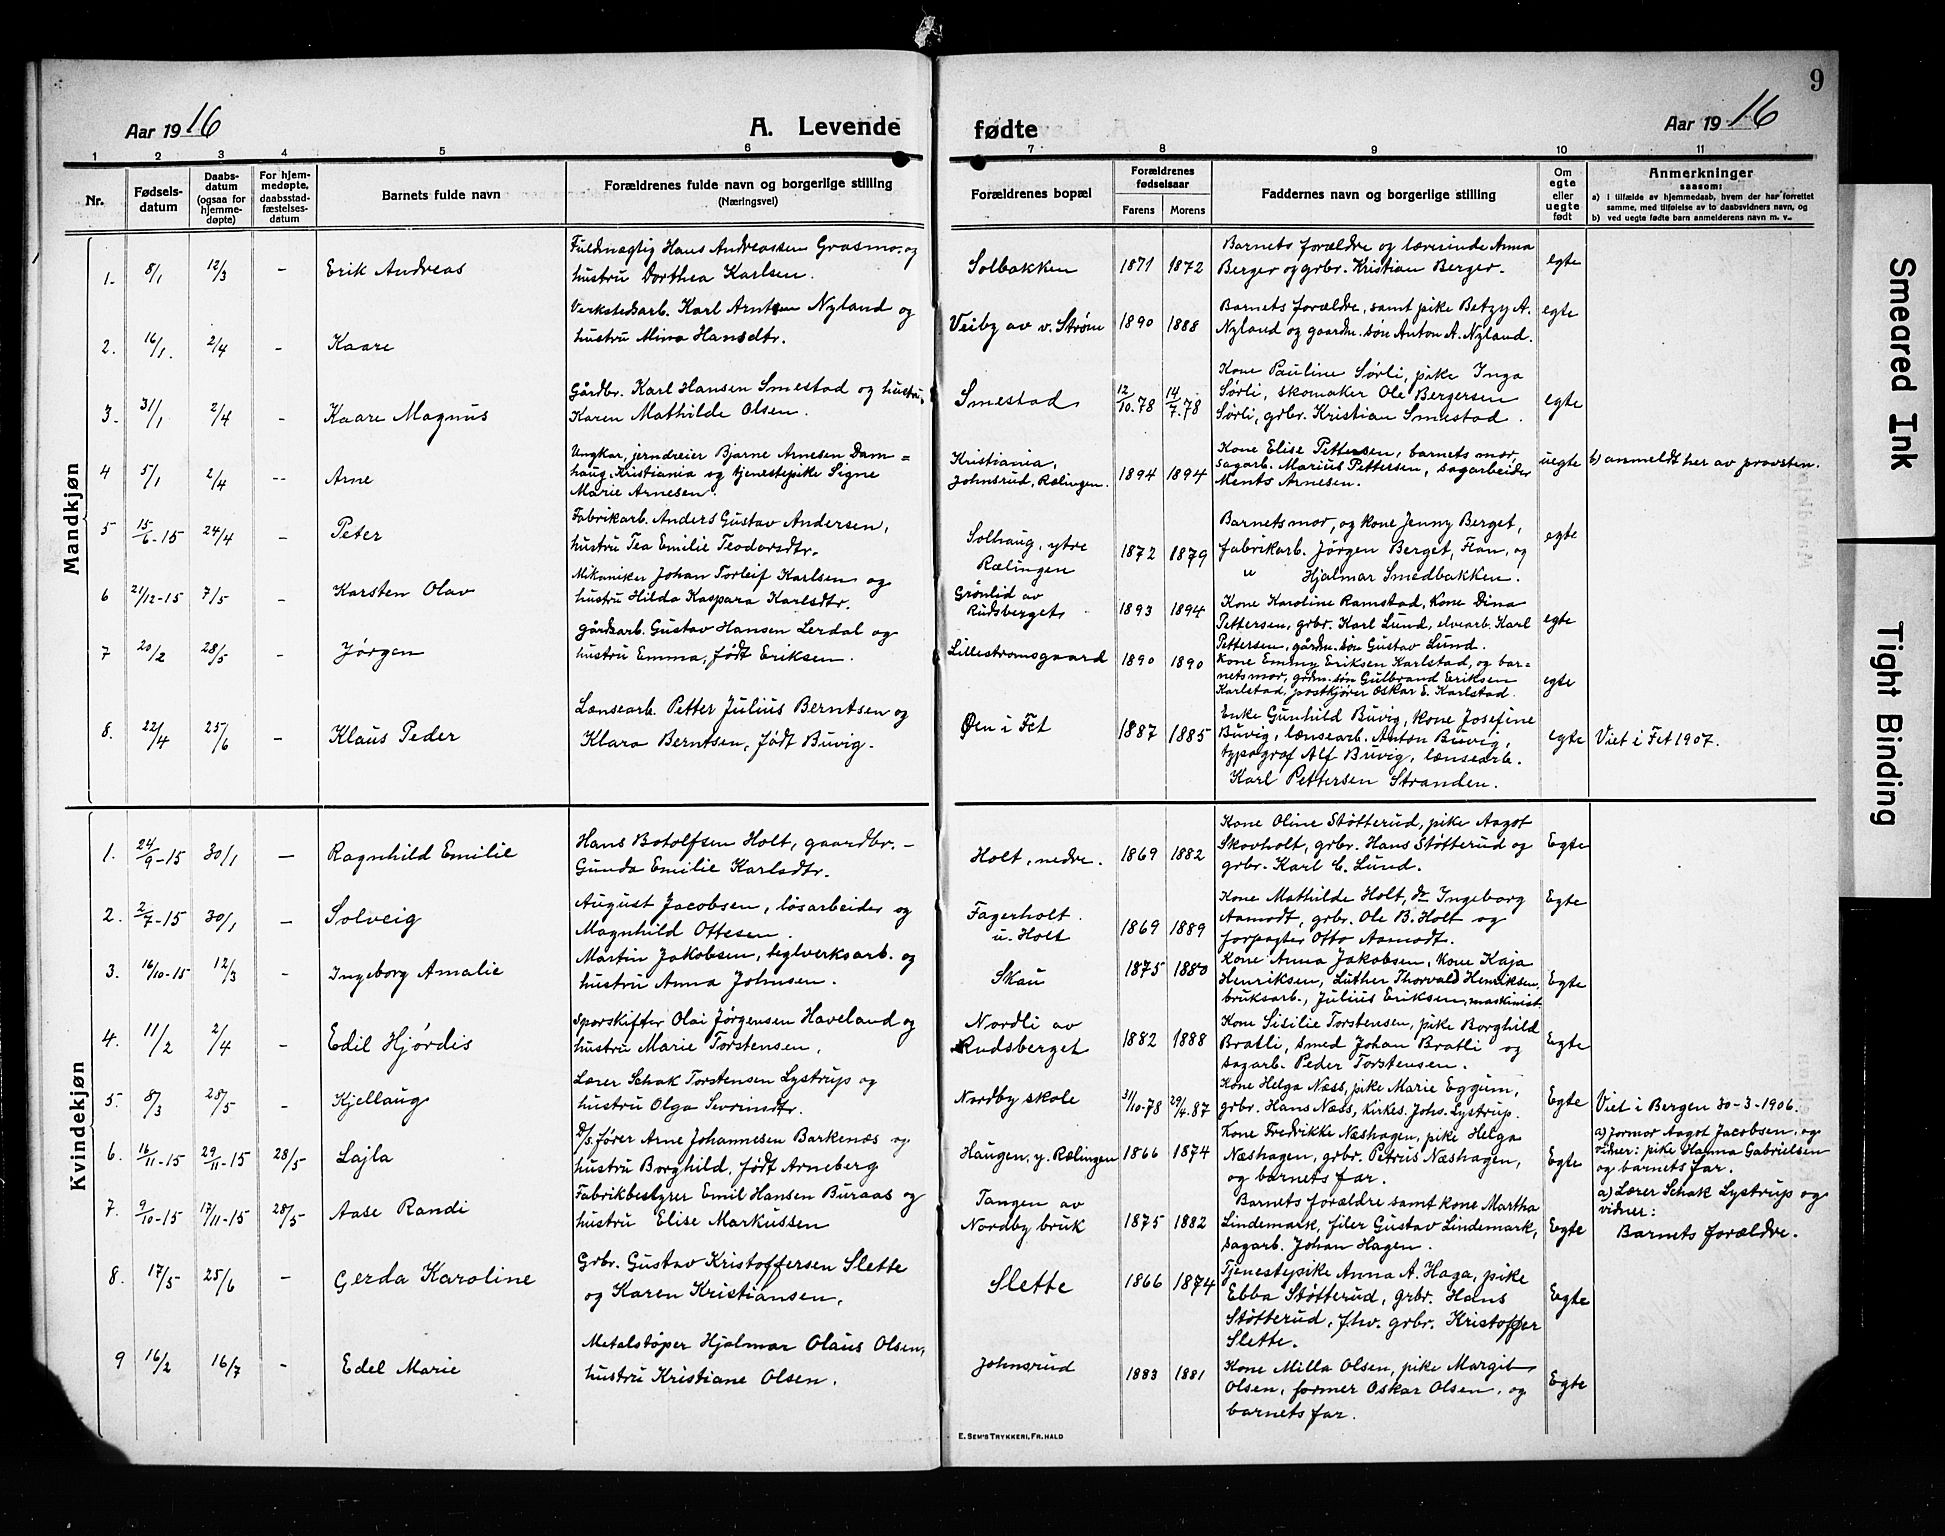 9
Aar 1916
A. Levende
fødte
Aar 1916
1 2 3 4 5 6 7 8 9 10 11
Nr.
Fødsels-
datum
Daabs-
datum
(ogsaa for
hjemme-
døpte)
For hjem-
medøpte,
daabsstad-
fæstelses-
datum
Barnets fulde navn
Forældrenes fulde navn og borgerlige stilling
(Næringsvei)
Forældrenes bopæl
Forældrenes
fødselsaar
Farens Morens
Faddernes navn og borgerlige stilling
Om
egte
eller
uegte
født
Anmerkninger
saasom:
a) i tilfælde av hjemmedaab, hvem der har forrettet
samme, med tilføielse av to daabsvidners navn, og
b) ved uegte fødte barn anmelderens navn m. v.
Mandkjøn
1. 8/1 12/3 - Erik Andreas
Fuldmægtig Hans Andreassen Grasmo og
hustru Dorthea Karlsen.
Solbakken 1871 1872
Barnets forældre og lærerinde Anna
Berger og grbr. Kristian Berger.
egte
2. 16/1. 2/4 - Kaare
Verkstedsarb. Karl Arntsen Nyland og
hustru Mina Hansdtr.
Veiby av v. Strøm 1890 1888
Barnets forældre, samt pike Betzy A.
Nyland og gaardm. søn Anton A. Nyland.
egte
3. 31/1 2/4 - Kaare Magnus
Gårdbr. Karl Hansen Smestad og hustru,
Karen Mathilde Olsen.
Smestad 12/10.78 14/7.78
Kone Pauline Sørli, pike Inga
Sørli, skomaker Ole Bergersen
Sørli, grbr. Kristian Smestad.
egte
4 5/1 2/4 -- Arne
Ungkar, jerndreier Bjarne Arnesen Dam=
haug, Kristiania og tjenestepike Signe
Marie Arnesen.
Kristiania,
Johnsrud, Rælingen. 1894 1894
Kone Elise Pettersen, barnets mor,
sagarb. Marius Pettersen, sagarbeider
Ments Arnesen.
uegte b) anmeldt her av provsten.
5 15/6-15 24/4 - Peter
Fabrikarb. Anders Gustav Andersen,
hustru Tea Emilie Teodorsdtr.
Solhaug, ytre
Rælingen 1872 1879
Barnets mor, og kone Jenny Berget,
fabrikarb. Jørgen Berget, Flan, og
" Hjalmar Smedbakken.
egte
6 21/12-15 7/5 - Karsten Olav
Mikaniker Johan Torleif Karlsen og
hustru Hilda Kaspara Karlsdtr.
Grønlid av
Rudsberget 1893 1894
Kone Karoline Ramstad, Kone Dina
Pettersen, grbr. Karl Lund, elvearb. Karl
Pettersen, gårdm. søn Gustav Lund.
egte
7 20/2 28/5 - Jørgen
gårdsarb. Gustav Hansen Lerdal og
hustru Emma, født Eriksen.
Lillestrømsgaard 1890 1890
Kone Emmy Eriksen Karlstad, og bar-
nets mor, grdm. søn Gulbrand Eriksen
Karlstad, postkjører Oskar E. Karlstad.
egte
8. 22/4 25/6 - Klaus Peder
Lænsearb. Petter Julius Berntsen og
Klara Berntsen, født Buvig.
Øen i Fet 1887 1885
Enke Gunhild Buvig, kone Josefine
Buvig, lænsearb. Anton Buvig,
typograf Alf Buvig, lænsearb.
Karl Pettersen Stranden.
egte Viet i Fet 1907.
Kvindekjøn
1. 24/9-15 30/1 - Ragnhild Emilie
Hans Botolfsen Holt, gaardbr. -
Gunda Emilie Karlsdtr.
Holt, nedre. 1869 1882
Kone Oline Støtterud, pike Aagot
Skovholt, grbr. Hans Støtterud og
grbr. Karl C. Lund.
Egte
2. 2/7-15 30/1 - Solveig
August Jacobsen, løsarbeider og
Magnhild Ottesen.
Fagerholt.
u. Holt 1869 1889
Kone Mathilde Holt, do Ingeborg
Aamodt, grbr. Ole B. Holt og
forpagter Otto Aamodt.
Egte
3. 16/10-15 12/3 - Ingeborg Amalie
Martin Jakobsen, teglverksarb. og
hustru Anna Johnsen.
Skau 1875 1880
Kone Anna Jakobsen, Kone Kaja
Henriksen, Luther Thorvald Henriksen,
bruksarb., Julius Eriksen, maskinist.
Egte
4. 11/2 2/4 - Edil Hjördis
Sporskifter Olai Jørgensen Haveland og
hustru Marie Torstensen,
Nordli av
Rudsberget 1882 1888
Kone Sisilie Torstensen, pike Borghild
Bratli, smed Johan Bratli og
sagarb. Peder Torstensen.
Egte
5. 8/3 28/5 - Kjellaug
Lærer Schak Torstensen Lystrup og
hustru Olga Sevrinsdtr.
Nordby skole 31/10-78 29/4.87
Kone Helga Næss, pike Marie Eggum,
grbr. Hans Næss, kirkes. Johs. Lystrup.
Egte Viet i Bergen 30-3-1906.
6. 16/11-15 29/11-15 28/5 Lajla
D/s. fører Arne Johannesen Barkenæs og
hustru Borghild, født Arneberg
Haugen, y. Rælingen 1866 1874
Kone Fredrikke Næshagen, pike Helga
Næshagen, grbr. Petrus Næshagen,
og barnets far.
Egte
a) Jormor Aagot Jacobsen, og
vidner: pike Halma Gabrielsen
og barnets far.
7. 9/10-15 17/11-15 28/5 Aase Randi
Fabrikbestyrer Emil Hansen Buraas og
hustru Elise Markussen
Tangen av
Nordby bruk 1875 1882
Barnets forældre samt kone Martha
Lindemark, filer Gustav Lindemark,
sagarb. Johan Hagen.
Egte
a) Lærer Schak Lystrup og
vidner:
Barnets forældre.
8. 17/5 25/6 - Gerda Karoline
Grbr. Gustav Kristoffersen Slette
og Karen Kristiansen,
Slette 1866 1874
Tjenestepike Anna A. Haga, pike
Ebba Støtterud, grbr. Hans
Støtterud, fhv. grbr. Kristoffer
Slette.
Egte
9 16/2 16/7 - Edel Marie
Metalstøper Hjalmar Olaus Olsen,
hustru Kristiane Olsen.
Johnsrud 1883 1881
Kone Milla Olsen, pike Margit
Olsen, former Oskar Olsen, og
barnets far.
Egte
E. Sem's Trykkeri, Fr.hald
Smeared Ink
Tight Binding